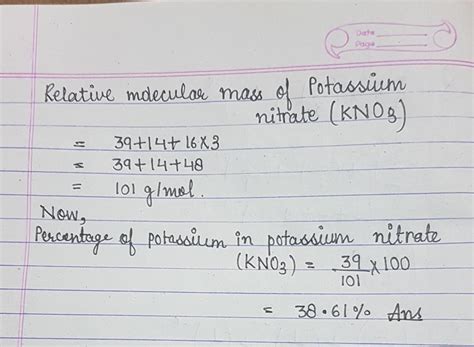 Date
Page
Relative molecular mass of Potassium
nitrate (KNO3)
= 39+14+16×3
= 39+14+48
= 101 g/mol.
Now,
Percentage of potassium in potassium nitrate
(KNO3) = 39/101 × 100
= 38.61% Ans